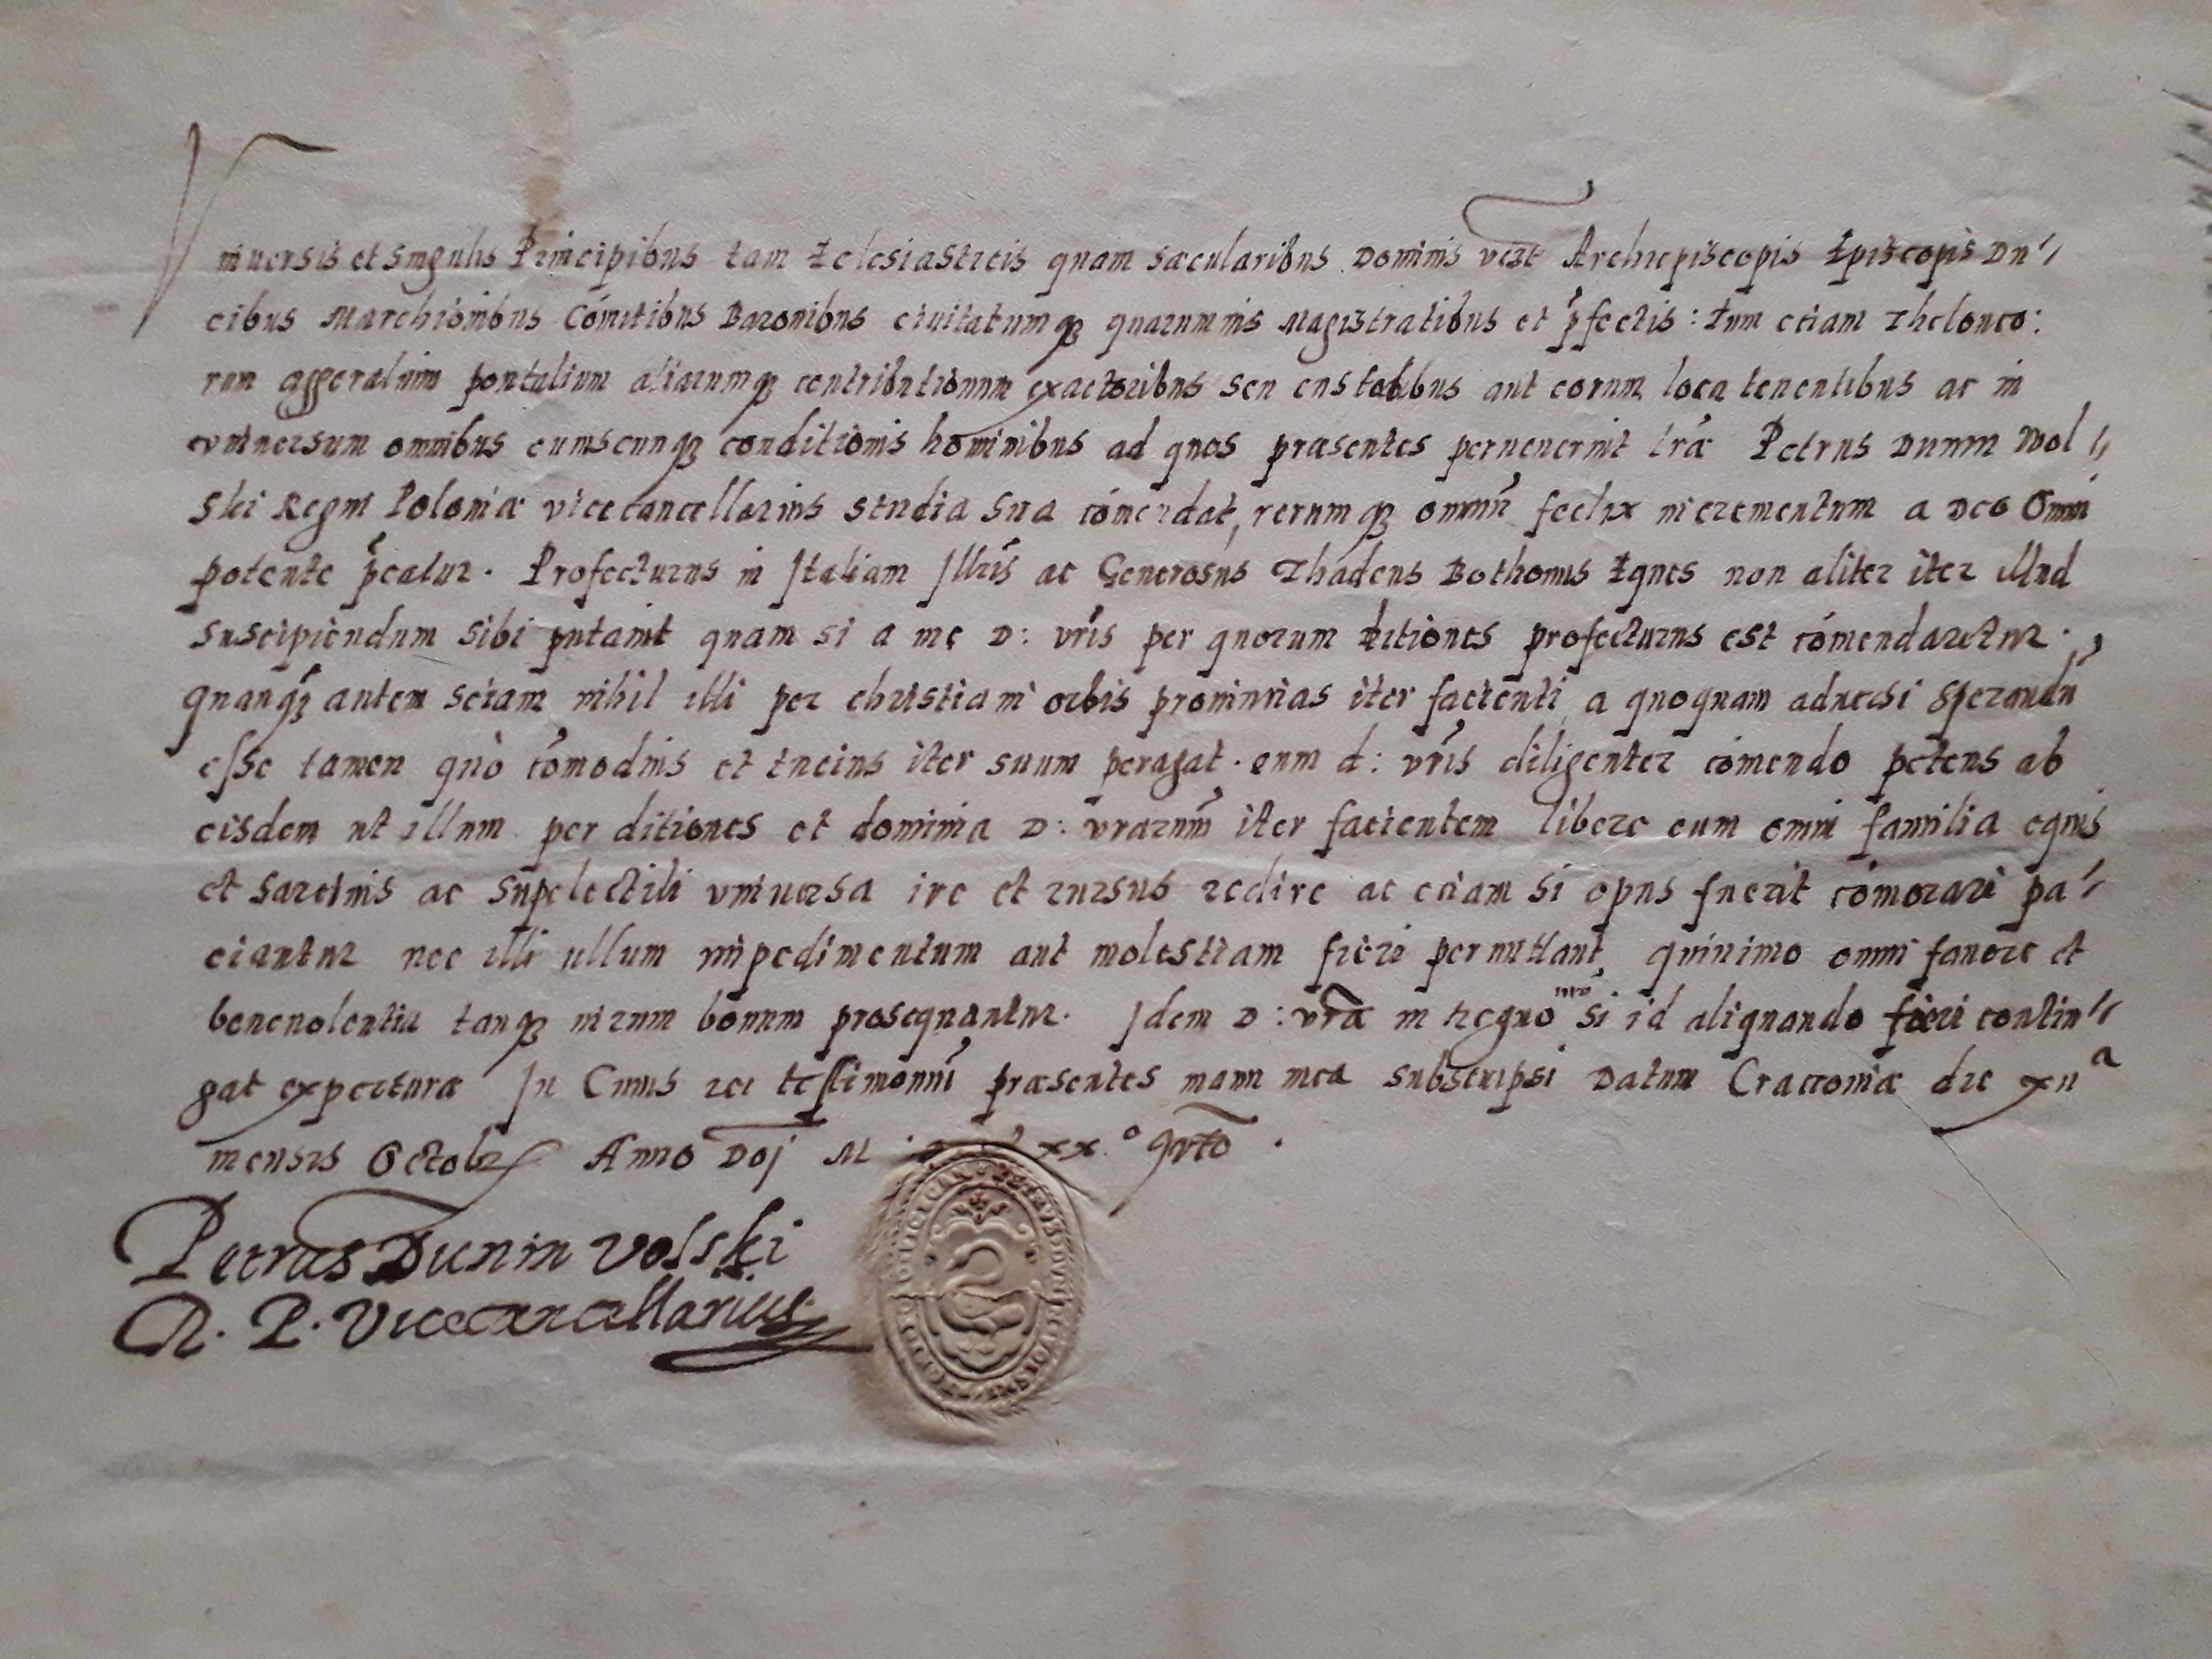 Vniuersis et singulis Principibus tam Eclesiasticis quam sæcularibus Dominis vero Archiepiscopis Episcopis Du"
cibus Marchionibus Cómitibus Baronibus ciuitatumq3 quarumuis Magistratibus et p̃fectis: Tum etiam Theloneo:
rum aggeralium pontalium aliarumq3 contributionum exactoribus seu custodibus aut eorum loca tenentibus ac in
vniuersum omnibus cuiuscunq3 conditionis hominibus ad quos præsentes peruenerint lr̃æ Petrus Dunin Wol"
ski Regni Poloniæ vicecancellarius studia sua cómendat, rerumq3 omniũ foelix incrementum a Deo Omni
potente p̃catur. Profecturus in Italiam Illris ac Generosus Thadeus Bothonus Eques non aliter iter illud
suscipiendum sibi putauit quam si a me D: vr̃is per quorum ditiones profecturus est cómendaretur.
quanq3̃ autem sciam nihil illi per christiani orbis prouintias iter facienti a quoquam aduersi sperandũ
esse tamen quò cómodius et tucius iter suum peragat. eum d: vr̃is diligenter cómendo petens ab
eisdem ut illum per ditiones et dominia D: vrarum̃ iter facientem libere cum omni familia equis
et sarcinis ac supelectili vniuersa ire et rursus redire ac etiam si opus fuerit cómorari pa"
ciantur nec illi ullum impedimentum aut molestiam fieri permittant quinimo omni fauore et
beneuolentia tanq3 uirum bonum prosequantur. Idem D: vr̃a in Regno nr̃o si id aliquando fieri contin"
gat expecturæ In Cuius rei testimoniũ præsentes manu mea subscripsi Datum Cracouiæ die xii a
mensis Octobr Anno Doj M xx o qvto.
Petrus Dunin Volski
R. P. Vicecancellarius